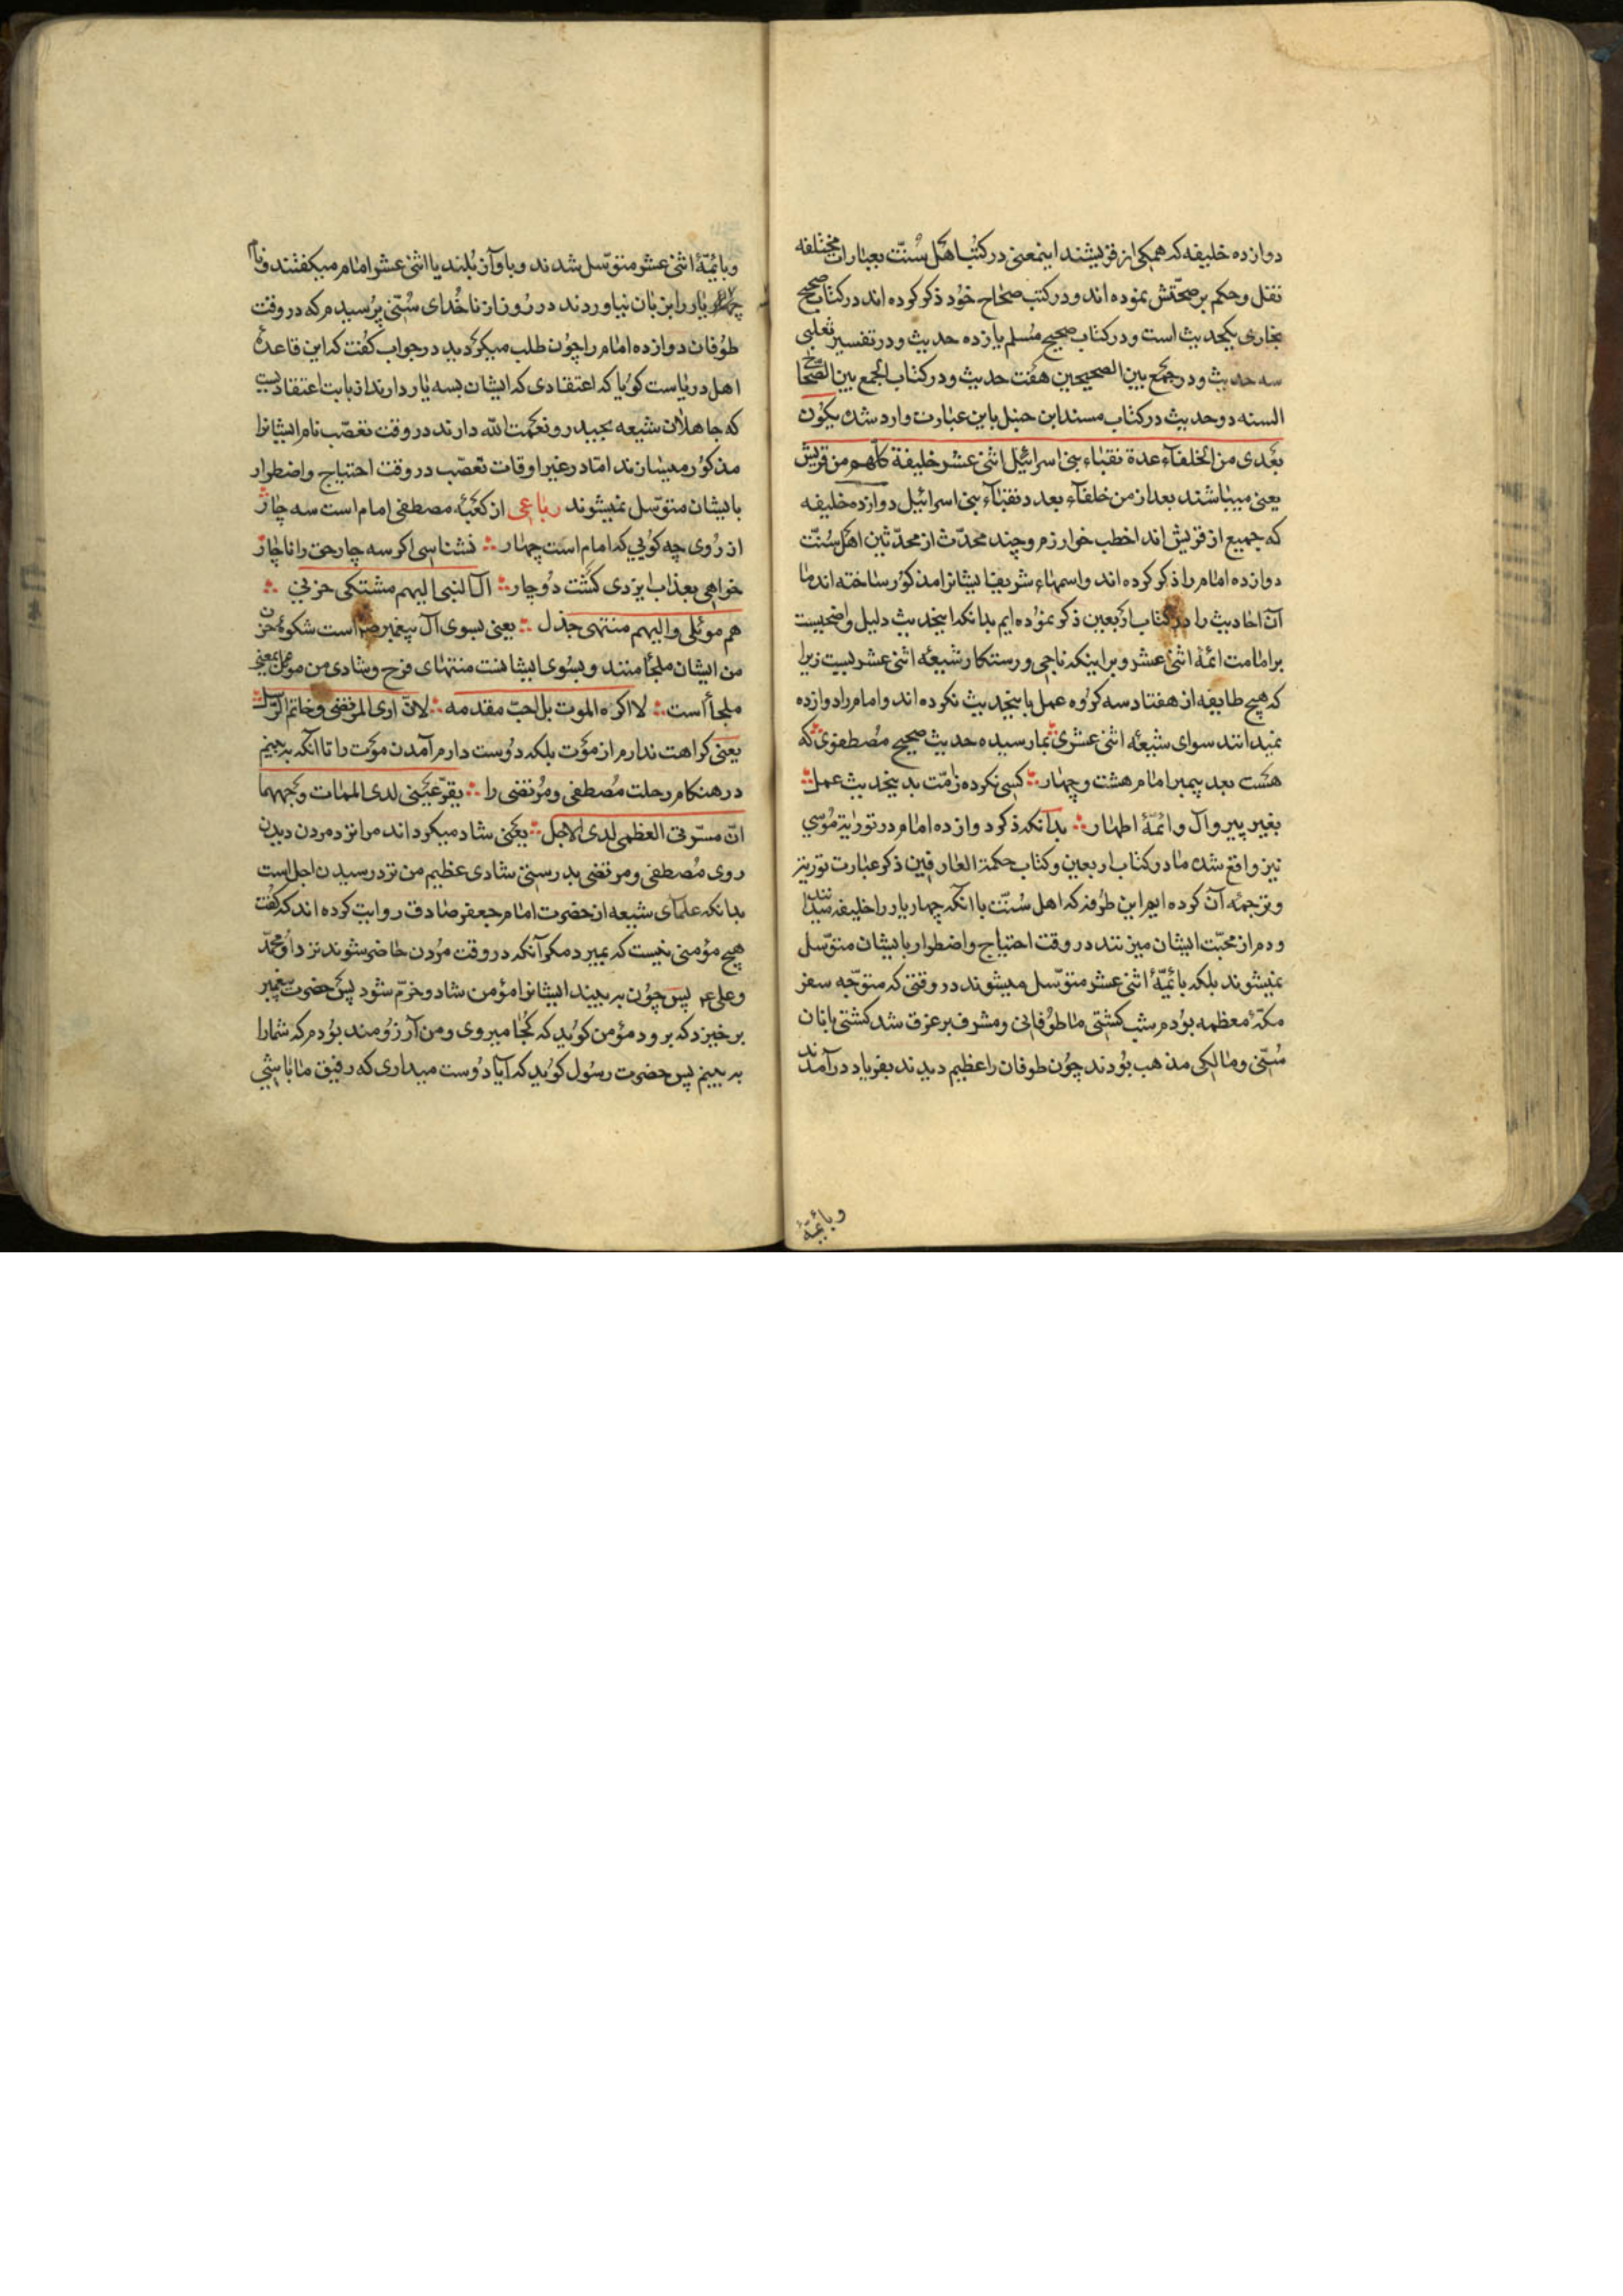 دوازده خلیفه که همکی از قریشند اینمعنی در کتب اهل سُنّت بعبارات مختلفه
نقل و حکم بر صحّتش نموده اند و در کتب صحاح خود ذکر کرده اند در کتاب صحیح
بخاری یکحدیث است و در کتاب صحیح مُسلم یازده حدیث و در تفسیر ثعلبی
سه حدیث و در جمع بین الصحیحین هفت حدیث و در کتاب الجمع بین الصّحاح
السته دو حدیث در کتاب مسند ابن حنبل باین عبارت وارد شده یکون
بعدی من الخلفآء عدة نقباء بنی اسرائیل اثنی عشر خلیفة کلّهم من قریش
یعنی میباشند بعد از من خلفآء بعدد نقبآء بنی اسرائیل دوازده خلیفه
که جمیع از قریش اند اخطب خوارزم و چند محدّث از محدّثین اهل سُنّت
دوازده امام را ذکر کرده اند و اسمهاء شریف ایشانرا مذکور ساخته اند ما
آن احادیث را در کتاب اربعین ذکر نموده ایم بدانکه اینحدیث دلیل واضحیست
بر امامت ائمّهٔ اثنی عشر و بر اینکه ناجی و رستکار شیعهٔ اثنی عشریست زیرا
که هیچ طایفه از هفتاد سه کروه عمل باینحدیث نکرده اند و امام را دوازده
نمیدانند سوای شیعهٔ اثنی عشری بما رسیده حدیث صحیح مُصطفوی که
هست بعد پیمبر امام هشت و چهار کسی نکرده ز امّت بدینحدیث عمل
بغیر پیرو آل و ائمّهٔ اطهار بدانکه ذکر دوازده امام در توراتة مُوسی
نیز واقع شده ما در کتاب اربعین و کتاب حکمة العارفین ذکر عبارت توریة
و ترجمهٔ آن کرده ایم این طُرفه که اهل سُنّت با آنکه چهار یار را خلیفه میدانند
و دم از محبّت ایشان میزنند در وقت احتیاج و اضطرار بایشان متوسّل
نمیشوند بلکه بائمّهٔ اثنی عشر متوسّل میشوند در وقتی که متوجّه سفر
مکّهٔ معظمه بودم شب کشتی ما طوفانی و مشرف بر غرق شد کشتی بانان
سُنّی و مالکی مذهب بُودند چون طوفان را عظیم دیدند بفریاد درآمدند
وبائمّهٔ
وبائمّهٔ اثنی عشر متوسّل شدند و باواز بُلند یا اثنی عشر امام میکفتند و نام
چهار یار را بزبان نیاوردند در روز از ناخُدای سُنّی پُرسیدم که در وقت
طُوفان دوازده امام را چون طلب میکردید در جواب کفت که این قاعدهٔ
اهل دریاست کویا که اعتقادی که ایشان بسه یار دارند از بابت اعتقادیست
که جاهلان شیعه بحیدر و نعمت الله دارند در وقت تعصّب نام ایشانرا
مذکور میسازند امّا در غیر اوقات تعصّب در وقت احتیاج و اضطرار
بایشان متوسّل نمیشوند رباعی از کعبهٔ مصطفی امام است سه چار
از رُوی چه کویی که امام است چهار نشناسی اکر سه چار حق را ناچار
خواهی بعذاب ایزدی کشت دُوچار آل النبی الیهم مشتکی حزنی
هم موئلی و الیهم منتهی جذل یعنی بسوی آل پیغمبر است شکوهٔ حزن
من ایشان ملجأ منند و بسُوی ایشانست منتهای فرح و شادی من موئل بمعنی
ملجأ است لا اکره الموت بل احبّ مقدمه لانّ اری المرتضی و خاتم الرّسل
یعنی کراهت ندارم از مؤت بلکه دُوست دارم آمدن مؤت را تا آنکه به بینم
در هنکام رحلت مُصطفی و مُرتضی را یقرّ عینی لدی الممات وجههما
انّ مسرّتی العظمی لدی الاجل یعنی شاد میکرداند مرا نزد مردن دیدن
روی مُصطفی و مرتضی بدرستی شادی عظیم من نزد رسیدن اجل است
بدانکه علمآی شیعه از حضرت امام جعفر صادق روایت کرده اند که کفت
هیچ مؤمنی نیست که بمیرد مکر آنکه در وقت مُردن حاضر میشوند نزد او محمّد
و علی ع پس چون به بیند ایشانرا مؤمن شاد و خرّم شود پس حضرت پیغمبر
برخیزد که برود مؤمن کوید که کجا میروی و من آرزُومند بُودم که شمارا
به بینم پس حضرت رسُول کوید که آیا دُوست میداری که رفیق ما باشی